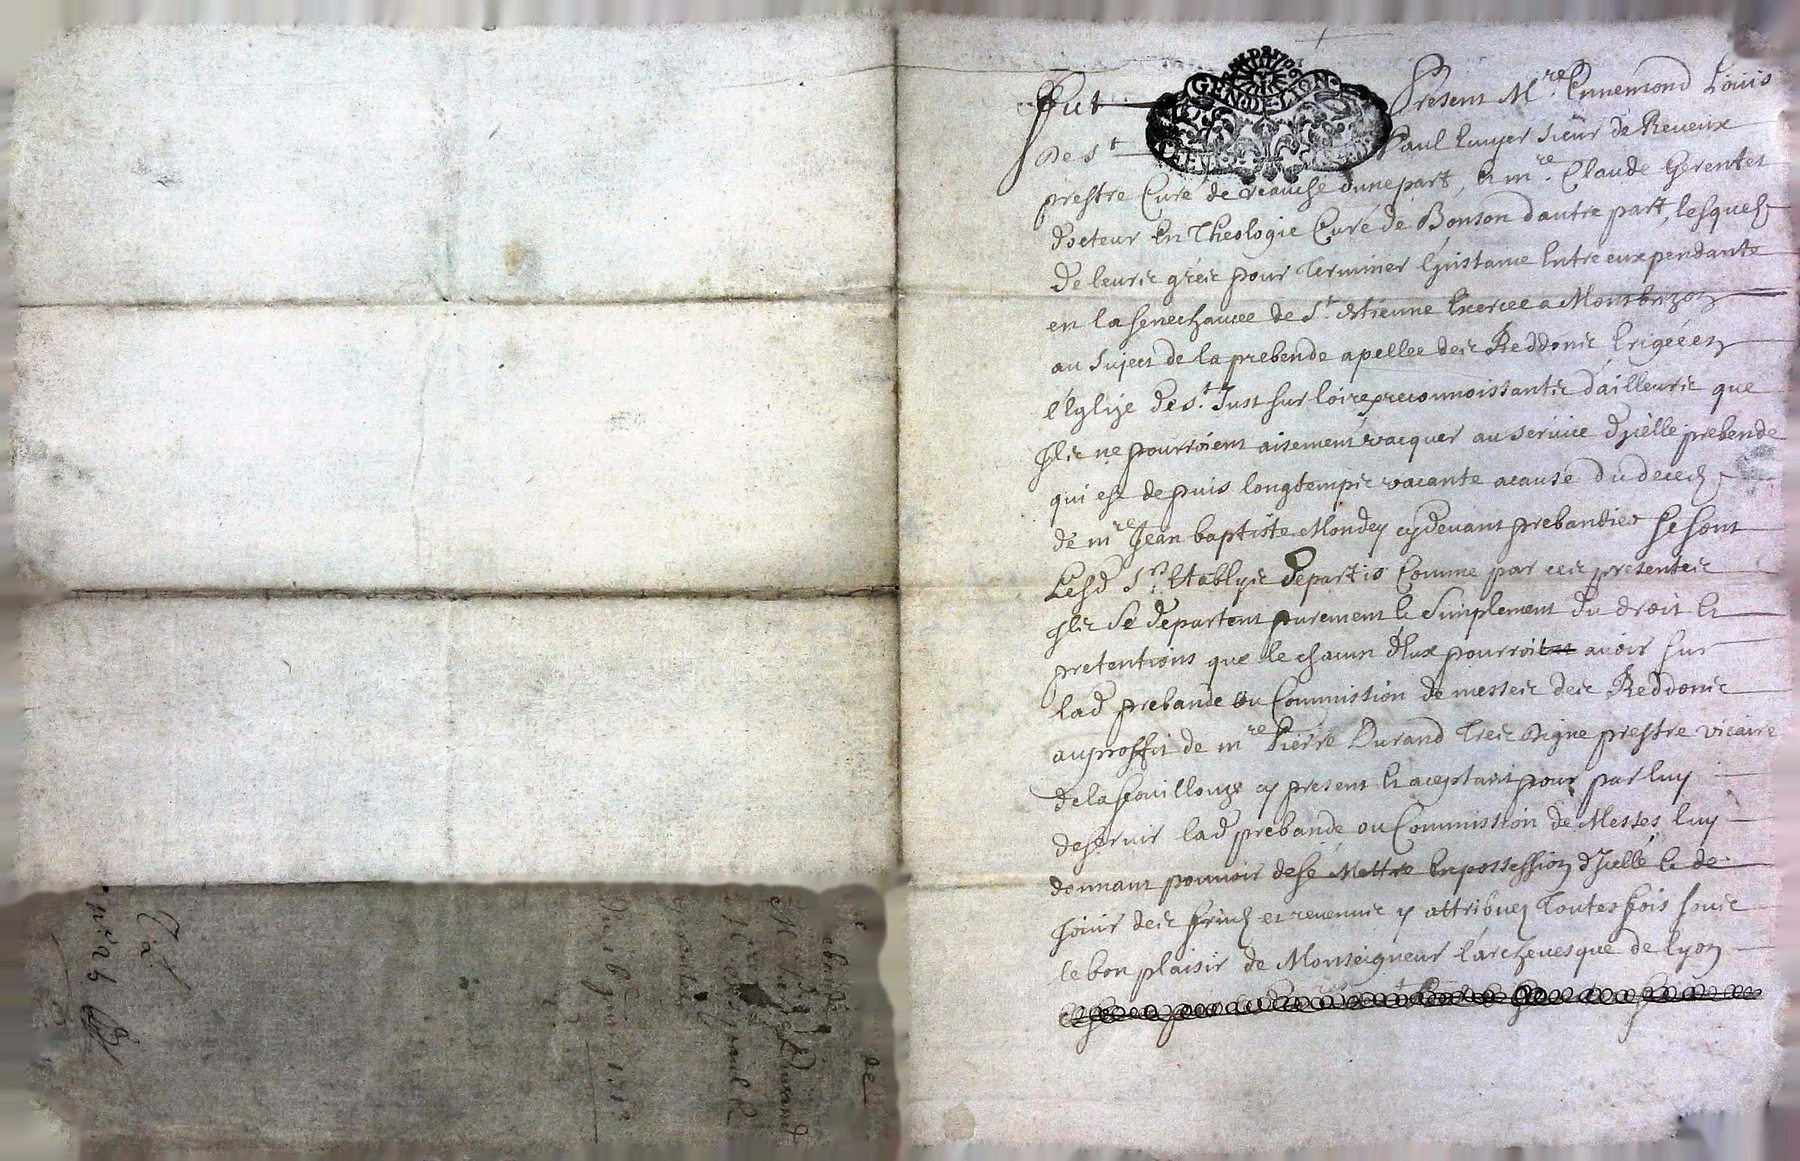 GEN·DE·LYON
Fut Present Mre. Ennemond Louis
De St Paul Ecuyer Sieur de Reveux
prestre Curé de veauche d'une part, et mre. Claude Gerentet
docteur En Theologie Curé de Bonson d'autre part, lesquels
de leurs gréés pour terminer l'instance Entre eux pendante
en la senechaucee de St. Etienne Exercee a Montbrizon
au suject de la prebende apellee des Reddons Erigée en
l'Eglize de St. Just sur loire, reconnoissants d'ailleurs que
Ils ne pourroient aisement vacquer au service d'jcelle prebende
qui est depuis longtemps vacante acause du decedz
de mre Jean baptiste Mondon cydevant prebandier se sont
Lesd. Srs Etablys departis Comme par ces presentes
Ils se departent purement et simplement du droit et
pretentions que le chacun d'Eux pourroit avoir sur
lad. prebande ou Commission de messes des Reddons
au proffit de mre Pierre Durand tres digne prestre vicaire
de la fouillouze cy present et aceptant pour par luy
deservir lad. prebande ou Commission de Messes luy
donnant pouvoir de se Mettre En possession d'jcelle et de
joüir des fruits et revenus y attribuez toutesfois sous
le bon plaisir de Monseigneur l'archevesque de lyon